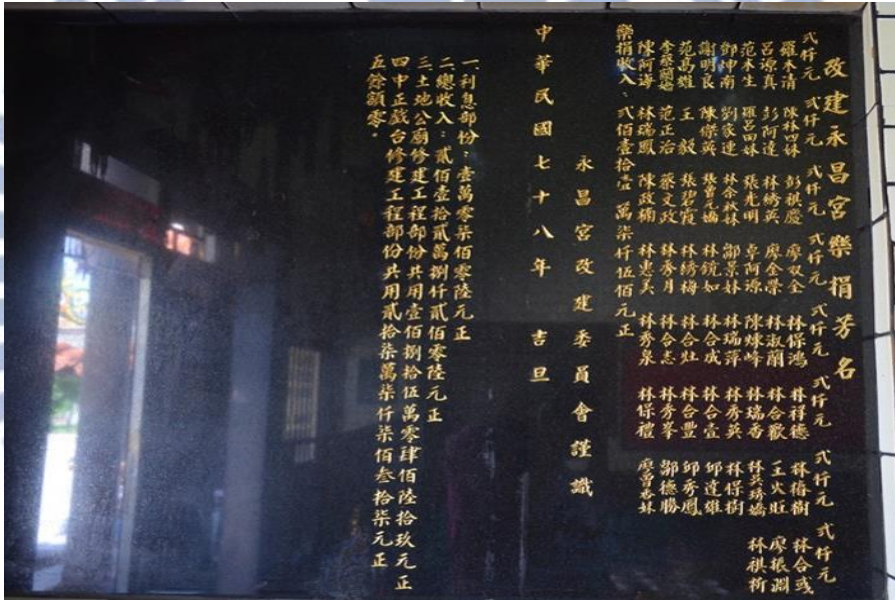 改建永昌宮樂捐芳名
弍仟元 弍仟元 弍仟元 弍仟元 弍仟元 弍仟元 弍仟元 弍仟元
羅木清 陳林四妹 彭祺慶 廖双金 林保鴻 林祥德 林椿樹 林合或
呂源真 彭阿達 林綉英 廖金榮 林淑蘭 林合歡 王火旺 廖振淵
范木生 羅呂四妹 張光明 卓阿源 陳煉峰 林瑞香 林吳琇嬌 林祺衍
鄧坤南 劉家連 林余秋妹 鄒景妹 林瑞萍 林秀英 林保樹
謝明良 陳傑英 張曾元嬌 林鏡如 林合成 林合宣 邱達雄
范高雄 王毅 張碧霞 林綉梅 林合壯 林合豐 邱秀鳳
范正治 蔡文政 林秀月 林合志 林秀峯 鄒德勝
陳阿海 林瑞鳳 陳政楠 林惠美 林秀泉 林保禮
樂捐收入：弍佰壹拾壹萬柒仟伍佰元正
永昌宮改建委員會謹識
中華民國七十八年 吉旦
一利息部份：壹萬零柒佰零陸元正
二總收入：貳佰壹拾貳萬捌仟貳佰零陸元正
三土地公廟修建工程部份共用壹佰捌拾伍萬零肆佰陸拾玖元正
四中正戲台修建工程部份共用貳拾柒萬柒仟柒佰叁拾柒元正
五餘額零。